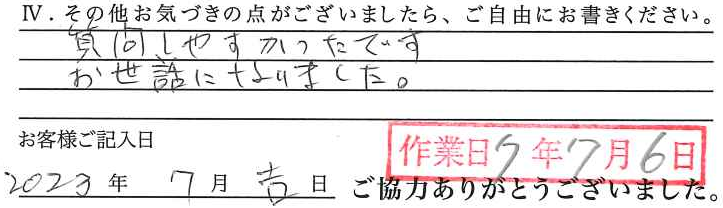 Ⅳ．その他お気づきの点がございましたら、ご自由にお書きください。
質問しやすかったです
お世話になりました。
お客様ご記入日
作業日5年7月6日
2023年7月吉日
ご協力ありがとうございました。